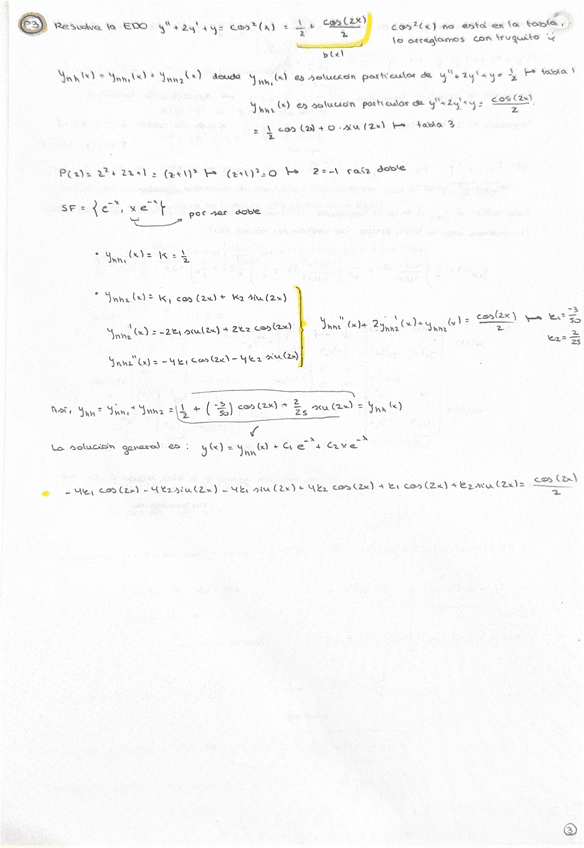 P3 Resuelva la EDO y''+2y'+y = cos²(x) = 1/2 + cos(2x)/2 cos²(x) no está en la tabla,
b(x) lo arreglamos con truquito ü
ynh(x) = ynh1(x) + ynh2(x) donde ynh1(x) es solución particular de y''+2y'+y = 1/2 ↦ tabla 1
ynh2(x) es solución particular de y''+2y'+y = cos(2x)/2
= 1/2 cos(2x) + 0·sin(2x) ↦ tabla 3
P(z) = z²+2z+1 = (z+1)² ↦ (z+1)²=0 ↦ z=-1 raíz doble
SF = {e^-x, xe^-x} → por ser doble
• ynh1(x) = K = 1/2
• ynh2(x) = K1 cos(2x) + K2 sin(2x)
ynh2'(x) = -2k1 sin(2x) + 2k2 cos(2x)
ynh2''(x) = -4k1 cos(2x) - 4k2 sin(2x)
ynh2''(x) + 2ynh2'(x) + ynh2(x) = cos(2x)/2 ↦ k1 = -3/50
k2 = 2/25
Así, ynh = ynh1 + ynh2 = 1/2 + (-3/50) cos(2x) + 2/25 sin(2x) = ynh(x)
La solución general es: y(x) = ynh(x) + C1 e^-x + C2 x e^-x
• -4k1 cos(2x) - 4k2 sin(2x) - 4k1 sin(2x) + 4k2 cos(2x) + k1 cos(2x) + k2 sin(2x) = cos(2x)/2
3